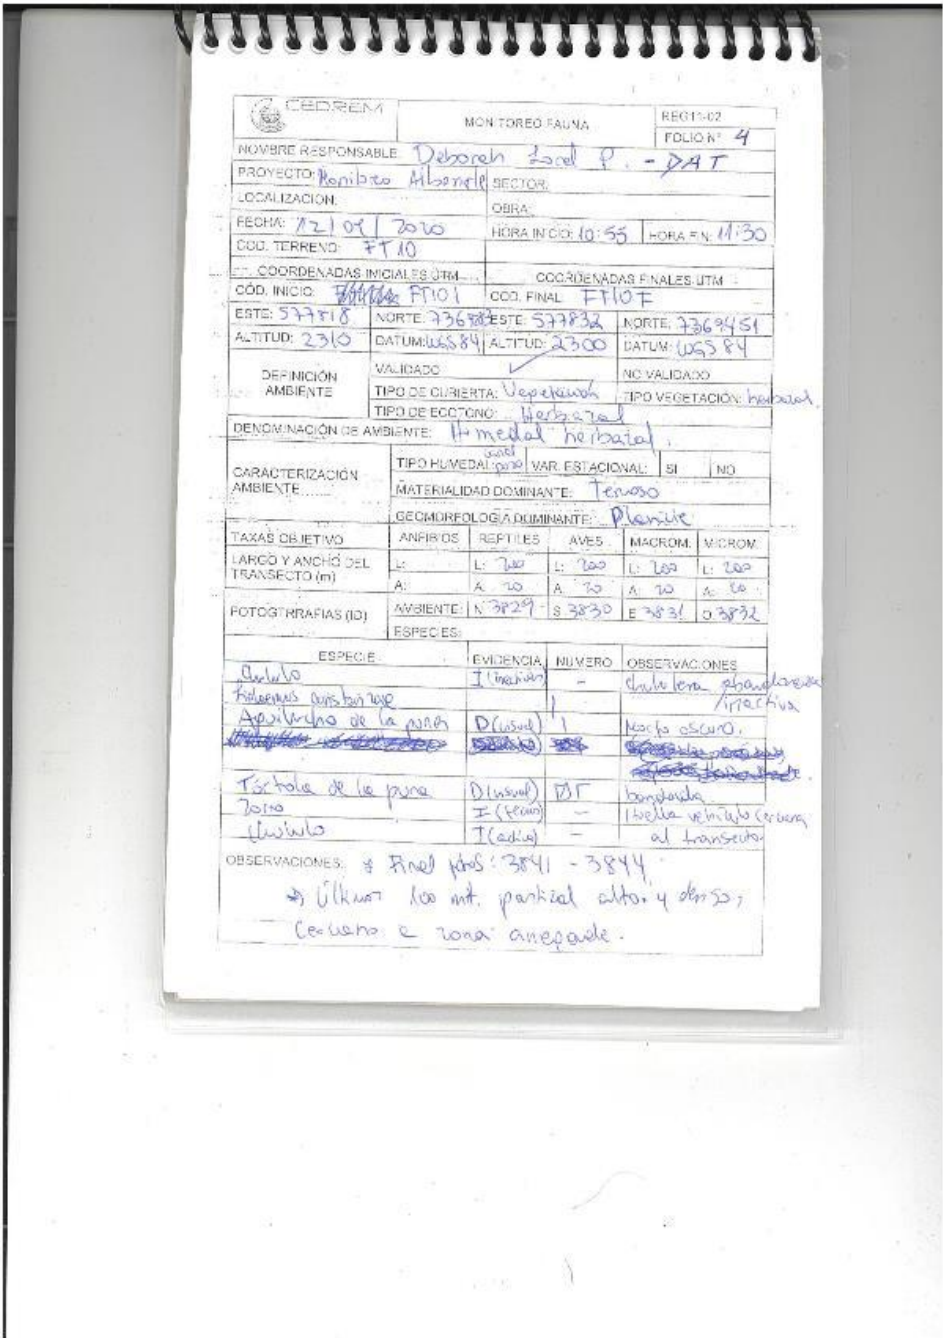 CEDREM
MONITOREO FAUNA
REG11-02
FOLIO N° 4
NOMBRE RESPONSABLE: Deborah P. - DAT
PROYECTO: SECTOR:
LOCALIZACION: OBRA:
FECHA: 12/01/2020 HORA INICIO: 10:55 HORA FIN: 11:30
COD. TERRENO: FT10
COORDENADAS INICIALES UTM COORDENADAS FINALES UTM
CÓD. INICIO: FT10I COD. FINAL FT10F
ESTE: 577818 NORTE: ESTE: 577832 NORTE: 7369451
ALTITUD: 2310 DATUM: WGS84 ALTITUD: 2300 DATUM: WGS84
DEFINICIÓN AMBIENTE
VALIDADO ✓ NO VALIDADO
TIPO DE CUBIERTA: Vegetación TIPO VEGETACIÓN: herbazal
TIPO DE ECOTONO: Herbazal
DENOMINACIÓN DE AMBIENTE: Humedal herbazal.
CARACTERIZACIÓN AMBIENTE
TIPO HUMEDAL: VAR. ESTACIONAL: SI NO
MATERIALIDAD DOMINANTE: Terroso
GEOMORFOLOGÍA DOMINANTE: Planicie
TAXAS OBJETIVO ANFIBIOS REPTILES AVES MACROM. MICROM.
LARGO Y ANCHO DEL TRANSECTO (m)
L: L: 200 L: 200 L: 200 L: 200
A: A: 20 A: 20 A: 20 A: 20
FOTOGTRRAFIAS (ID) AMBIENTE: N 3829 S 3830 E 3831 O 3832
ESPECIES:
ESPECIE EVIDENCIA NUMERO OBSERVACIONES
Chululo I (inactivo) - chululera abandonada
/inactiva
Aguilucho de la puna D (visual) 1 Macho oscuro.
Tórtola de la puna D (visual) bandada
Zorro I (fecas) - Huella vehículo cercana
Chululo I (activa) - al transecto
OBSERVACIONES: * Final fotos: 3841 - 3844
→ Últimos 100 mt. pastizal alto y denso,
cercano a zona anegada.